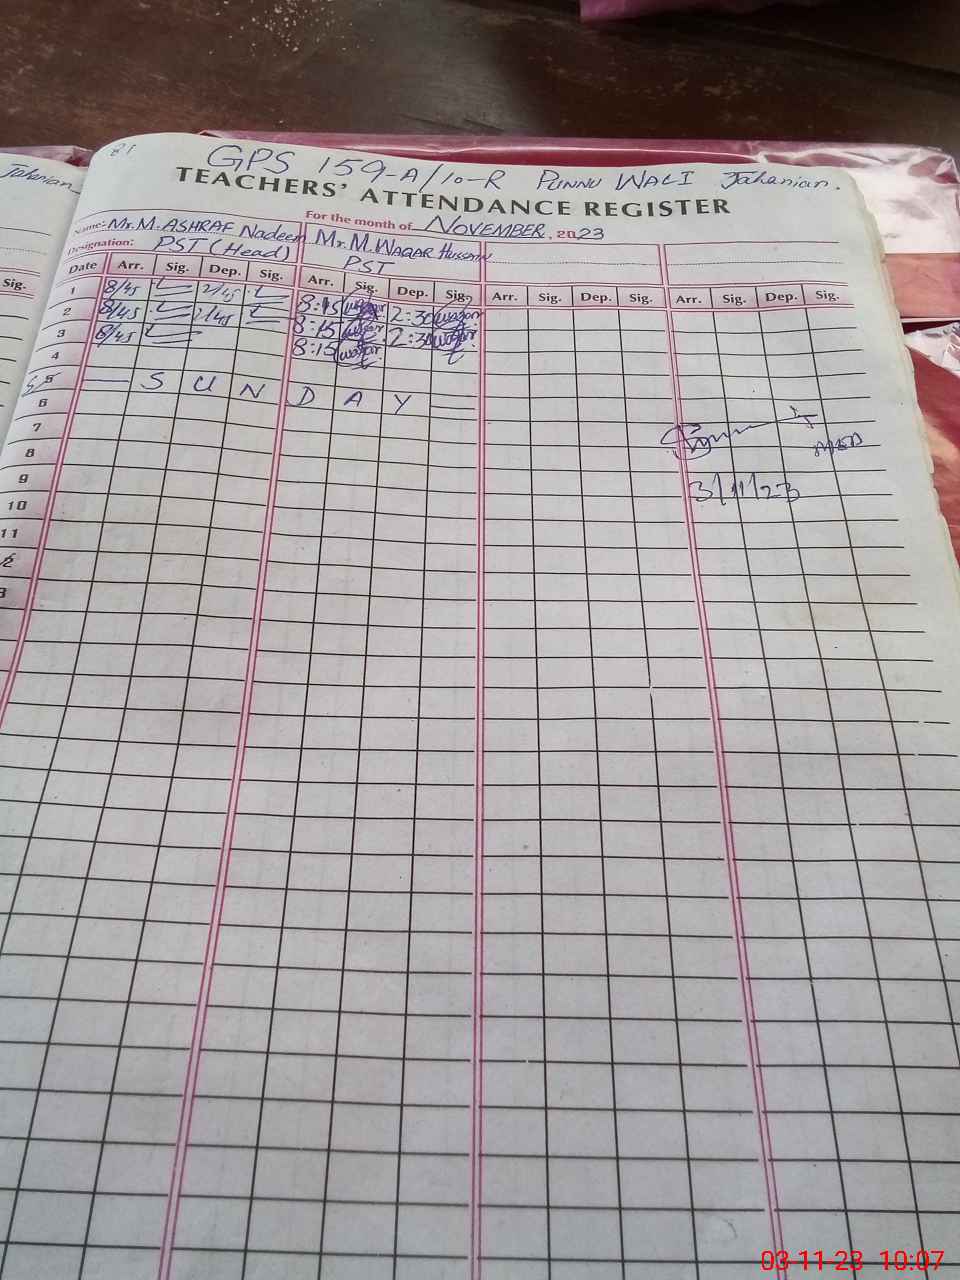 81
GPS 159-A/10-R PUNNU WALI Jahanian.
Jahanian
TEACHERS' ATTENDANCE REGISTER
For the month of NOVEMBER, 2023
Name:- Mr. M. ASHRAF Nadeem Mr. M. WAQAR Hussain
Designation: PST (Head) PST
Sig. Date Arr. Sig. Dep. Sig. Arr. Sig. Dep. Sig. Arr. Sig. Dep. Sig. Arr. Sig. Dep. Sig.
1 8/45 2/45 8:15 waqar 2:30 waqar
2 8/45 2/45 8:15 waqar 2:30 waqar
3 8/45 8:15 waqar
4
5 — S U N D A Y —
6
7
8
9
3/11/23
10
11
12
3
03-11-23 10:07